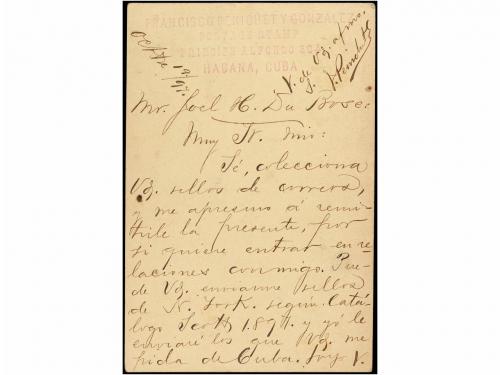 FRANCISCO PENICHET Y GONZALEZ
POSTAGE STAMP
PRINCIPE ALFONSO
HABANA, CUBA.
Octre 12/97.
S. de Vd. afmo.
S. Penichet
Mr. Joel H. Du Bose:
Muy Sr. mio:
Sé, colecciona
Vd. sellos de correos,
y me apresuro á remi-
tirle la presente, por
si quiere entrar en re-
laciones conmigo. Pue-
de Vd. enviarme sellos
de N. York. según Catá-
logo Scott 1.897. y yó le
enviaré los que Vd. me
pida de Cuba. Soy S.